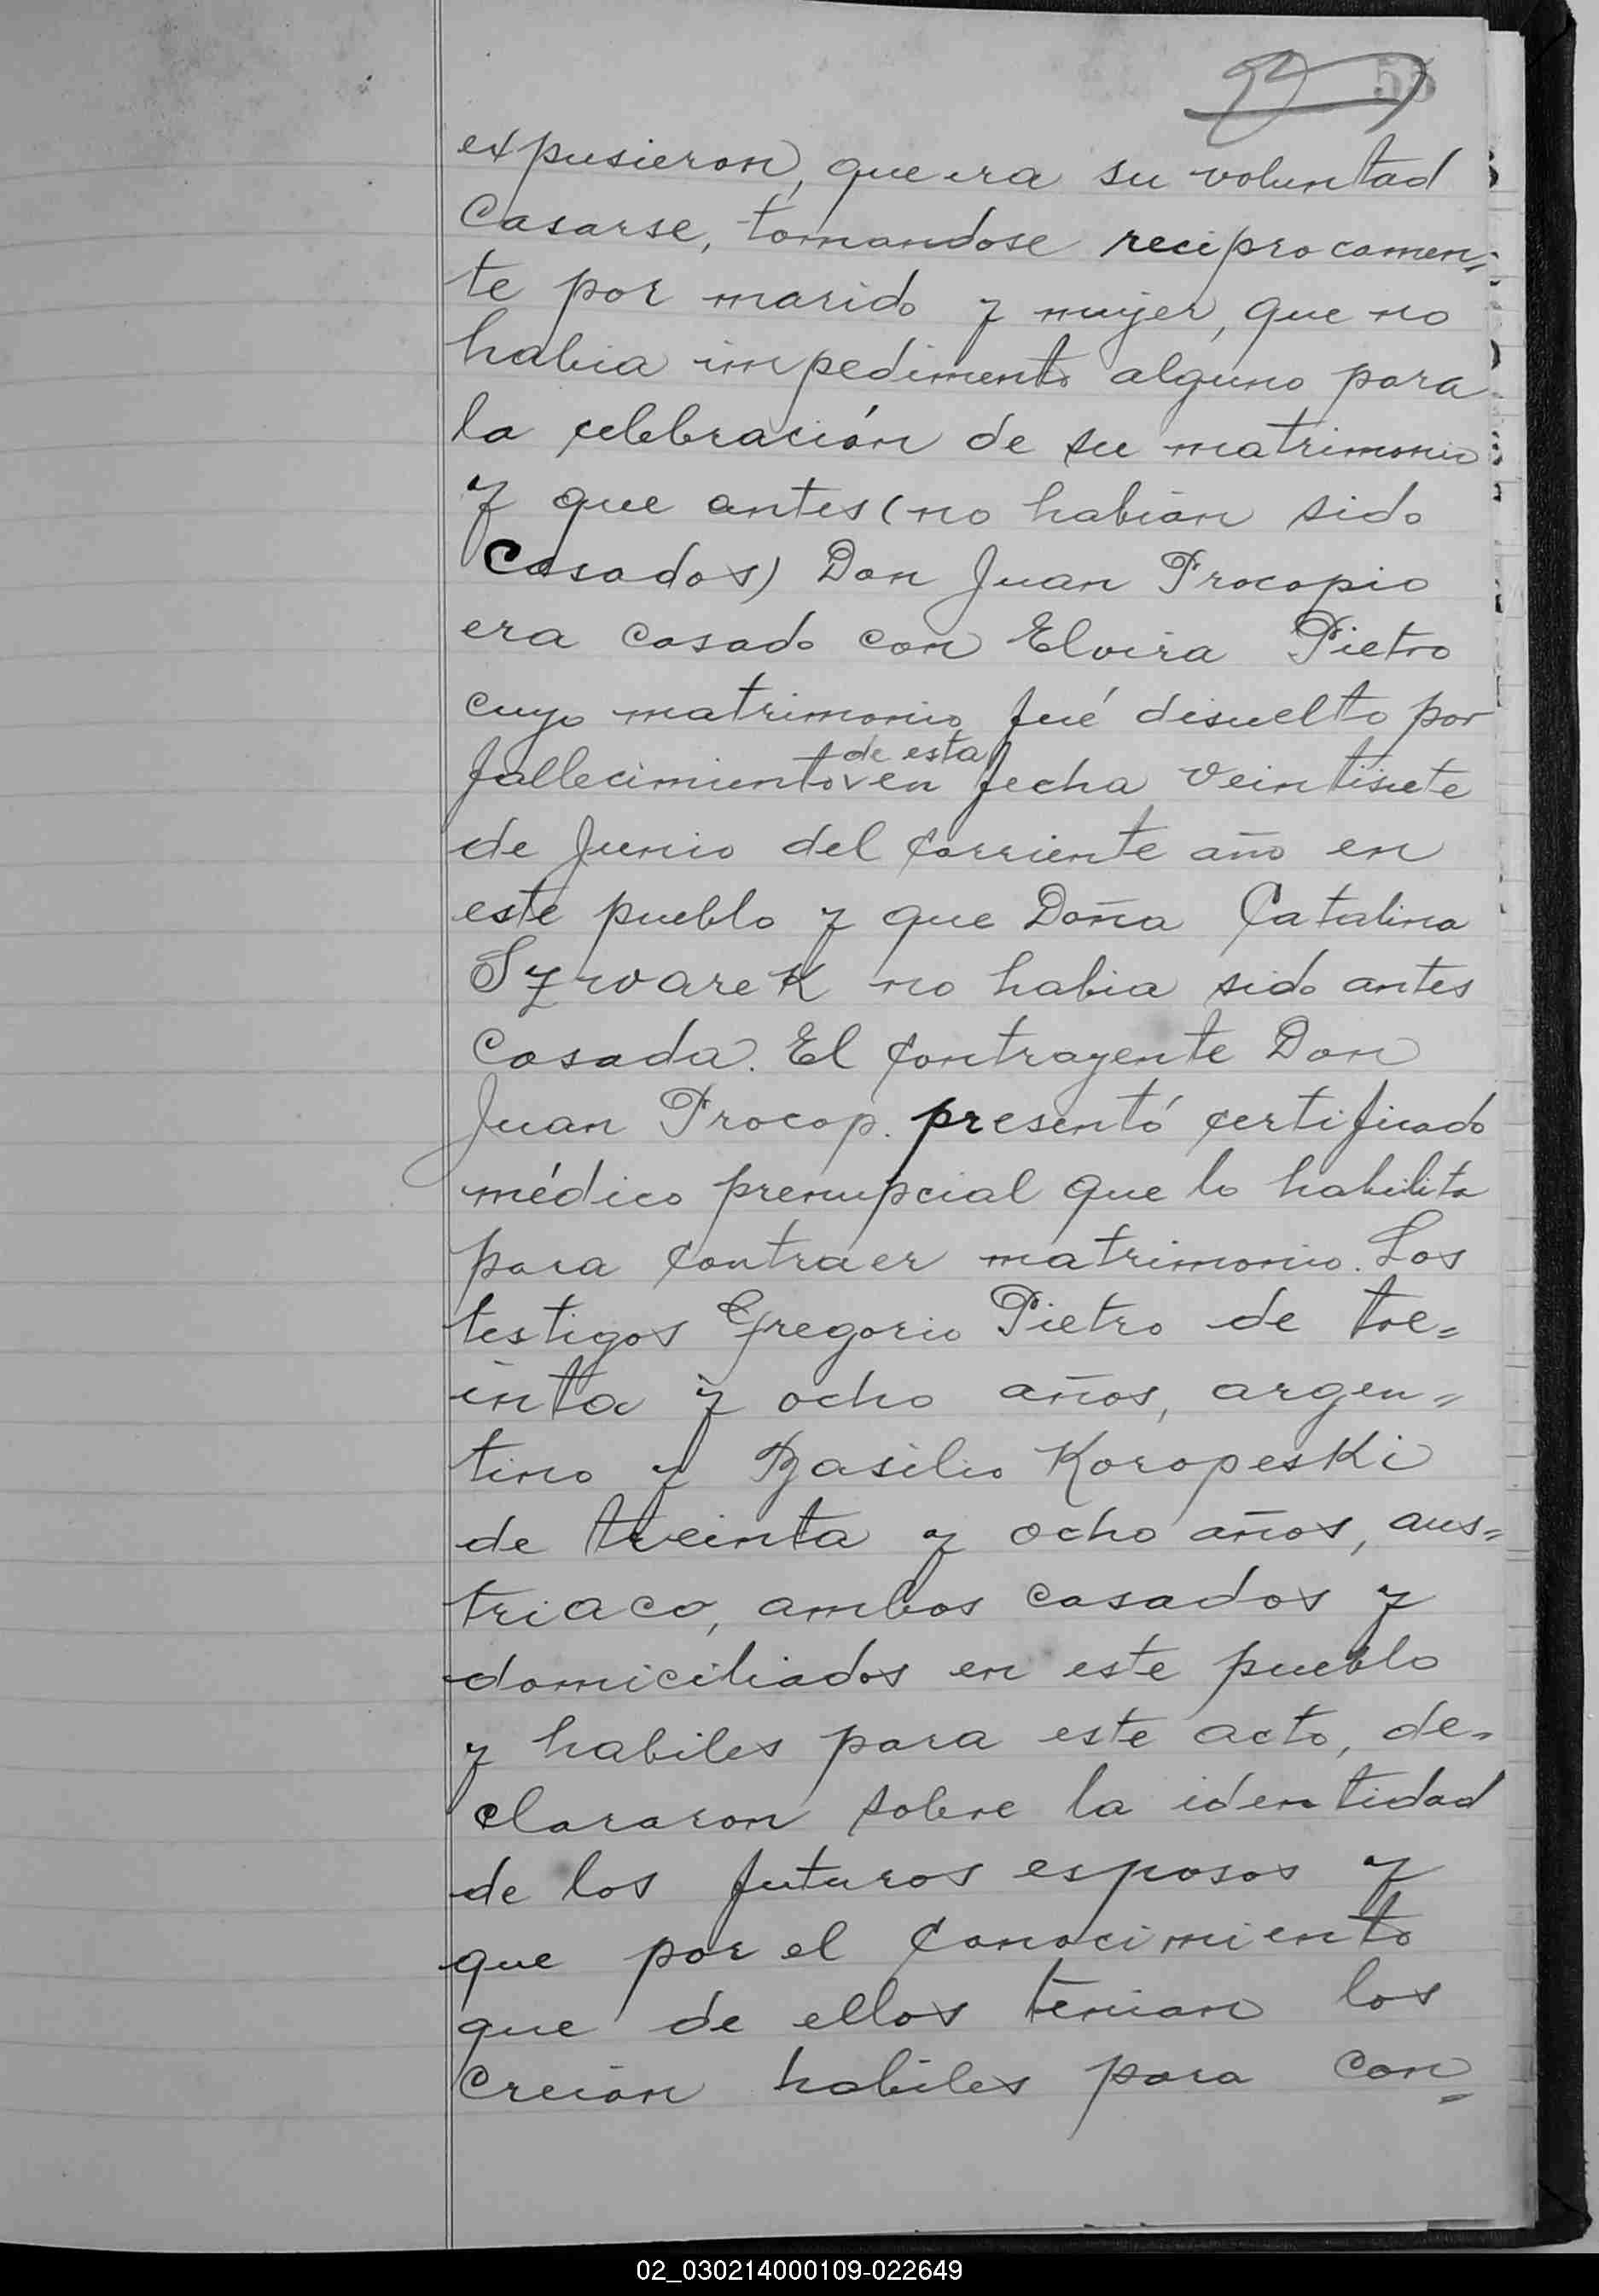 55
expusieron, que era su voluntad
Casarse, tomandose reciprocamen=
te por marido y mujer, que no
habia impedimento alguno para
la celebración de su matrimonio
y que antes (no habian sido
Casados) Don Juan Procopio
era casado con Elvira Pietro
cuyo matrimonio fué disuelto por
de esta
fallecimiento en fecha veintisiete
de Junio del corriente año en
este pueblo y que Doña Catalina
Szwarek no habia sido antes
Casada. El contrayente Don
Juan Procop. presentó certificado
médico prenupcial que lo habilita
para contraer matrimonio. Los
testigos Gregorio Pietro de tre=
inta y ocho años, argen=
tino y Basilio Koropeski
de treinta y ocho años, aus=
triaco, ambos casados y
domiciliados en este pueblo
y habiles para este acto, de=
clararon sobre la identidad
de los futuros esposos y
que por el conocimiento
que de ellos tenian los
creian habiles para con=
02_030214000109-022649